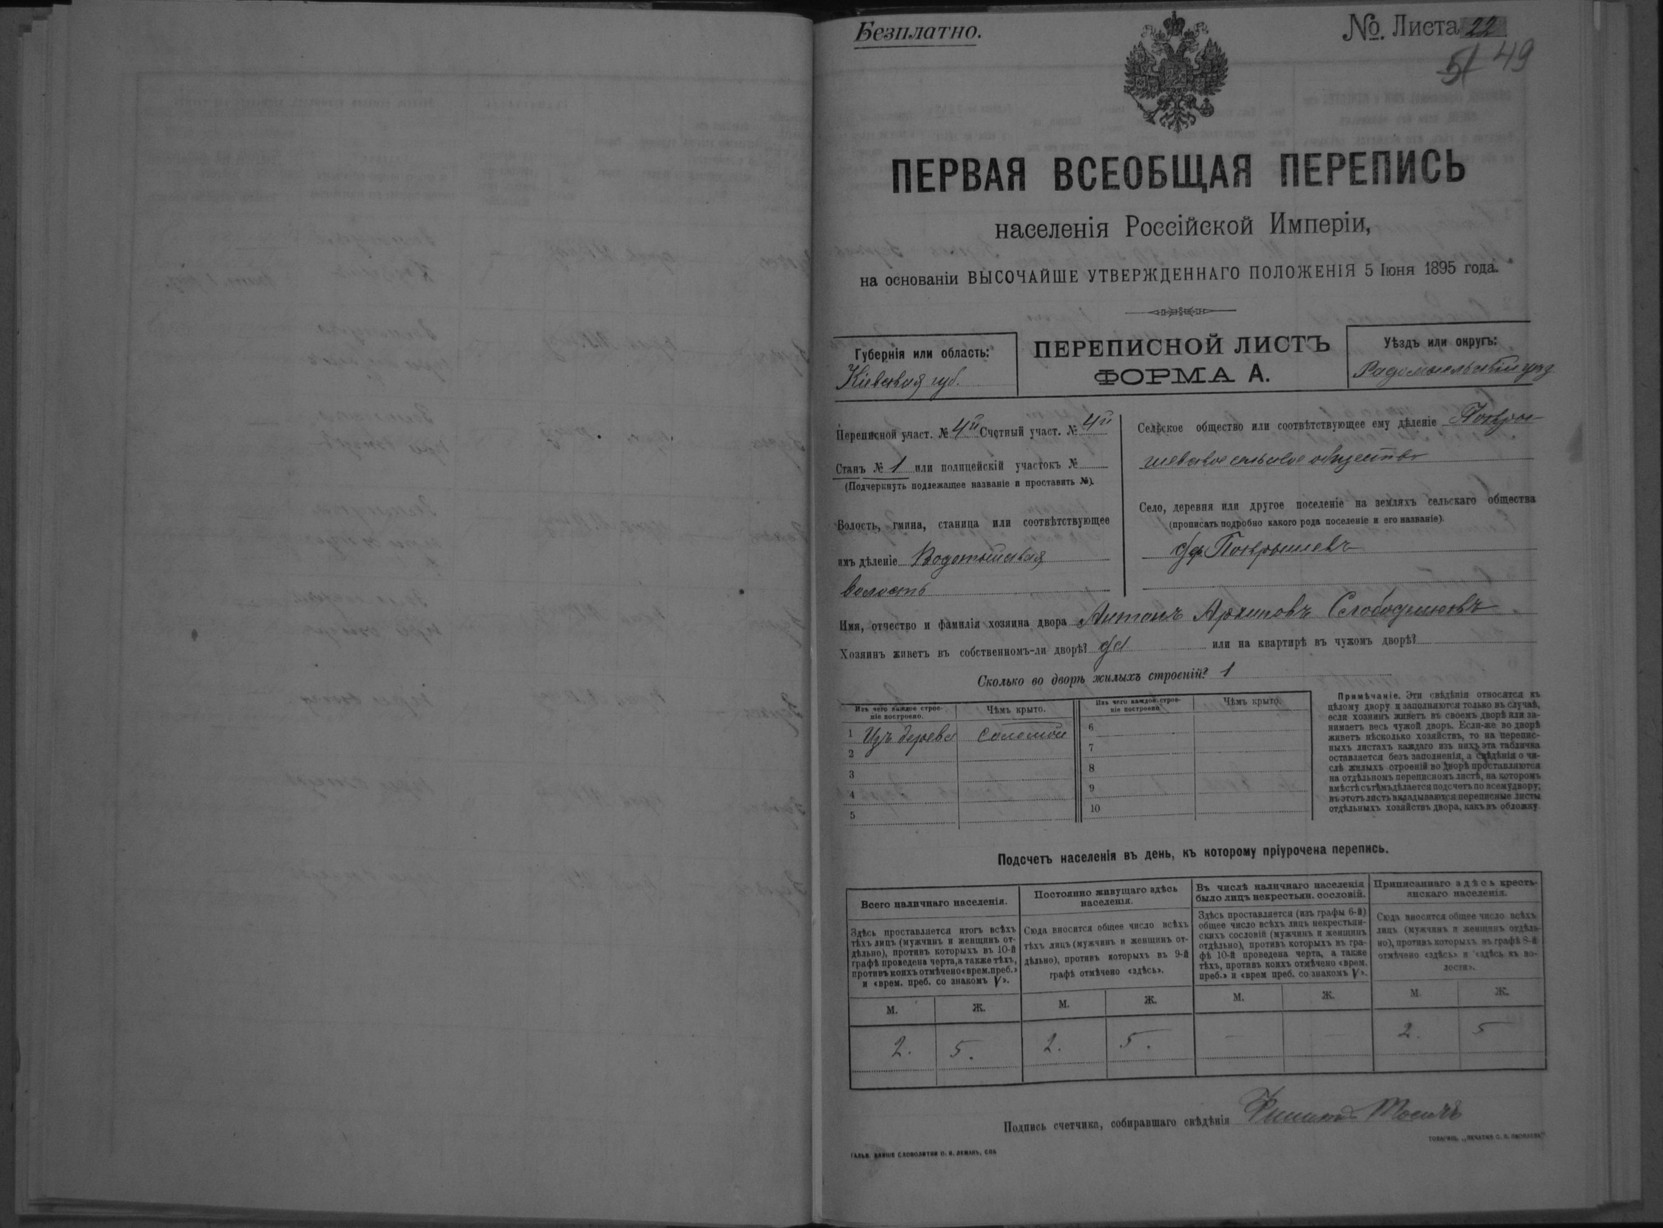 Безплатно.
№. Листа 22
51 49
ПЕРВАЯ ВСЕОБЩАЯ ПЕРЕПИСЬ
населенія Россійской Имперіи,
на основаніи ВЫСОЧАЙШЕ УТВЕРЖДЕННАГО ПОЛОЖЕНІЯ 5 Іюня 1895 года.
Губернія или область:
Кіевская губ.
ПЕРЕПИСНОЙ ЛИСТЪ
ФОРМА А.
Уѣздъ или округъ:
Радомысльскій уѣз
Переписной участ. № 4й Счетный участ. № 4й
Станъ № 1 или полицейскій участокъ №
(Подчеркнуть подлежащее названіе и проставить №).
Волость, гмина, станица или соотвѣтствующее
имъ дѣленіе Водотыйская
волость
Сельское общество или соотвѣтствующее ему дѣленіе Покры-
шевское сельское общество
Село, деревня или другое поселеніе на земляхъ сельскаго общества
(прописать подробно какого рода поселеніе и его названіе)
Покрышевъ
Имя, отчество и фамилія хозяина двора Антонъ Архиповъ
Хозяинъ живетъ въ собственномъ-ли дворѣ? да или на квартирѣ въ чужомъ дворѣ?
Сколько во дворѣ жилыхъ строеній? 1
Изъ чего каждое строе-
ніе построено.
Чѣмъ крыто.
Изъ чего каждое строе-
ніе построено.
Чѣмъ крыто.
1 Изъ дерева соломой
2
3
4
5
6
7
8
9
10
Примѣчаніе. Эти свѣдѣнія относятся къ
цѣлому двору и заполняются только въ случаѣ,
если хозяинъ живетъ въ своемъ дворѣ или за-
нимаетъ весь чужой дворъ. Если-же во дворѣ
живетъ нѣсколько хозяйствъ, то на перепис-
ныхъ листахъ каждаго изъ нихъ эта табличка
оставляется безъ заполненія, а свѣдѣнія о чи-
слѣ жилыхъ строеній во дворѣ проставляются
на отдѣльномъ переписномъ листѣ, на которомъ
вмѣстѣ съ тѣмъ дѣлается подсчетъ по всему двору;
въ этотъ листъ вкладываются переписные листы
отдѣльныхъ хозяйствъ двора, какъ въ обложку
Подсчетъ населенія въ день, къ которому пріурочена перепись.
Всего наличнаго населенія.
Здѣсь проставляется итогъ всѣхъ
тѣхъ лицъ (мужчинъ и женщинъ от-
дѣльно), противъ которыхъ въ 10-й
графѣ проведена черта, а также тѣхъ,
противъ коихъ отмѣчено «врем. преб.»
и «врем. преб. со знакомъ V».
М. Ж.
2. 5.
Постоянно живущаго здѣсь
населенія.
Сюда вносится общее число всѣхъ
тѣхъ лицъ (мужчинъ и женщинъ от-
дѣльно), противъ которыхъ въ 9-й
графѣ отмѣчено «здѣсь».
М. Ж.
2. 5.
Въ числѣ наличнаго населенія
было лицъ некрестьян. сословій.
Здѣсь проставляется (изъ графы 6-й)
общее число всѣхъ лицъ некрестьян-
скихъ сословій (мужчинъ и женщинъ
отдѣльно), противъ которыхъ въ гра-
фѣ 10-й проведена черта, а также
тѣхъ, противъ коихъ отмѣчено «врем.
преб.» и «врем преб. со знакомъ V».
М. Ж.
— —
Приписаннаго здѣсь кресть-
янскаго населенія.
Сюда вносится общее число всѣхъ
лицъ (мужчинъ и женщинъ отдѣль-
но), противъ которыхъ въ графѣ 8-й
отмѣчено «здѣсь» и «здѣсь въ во-
лости».
М. Ж.
2. 5
Подпись счетчика, собиравшаго свѣдѣнія